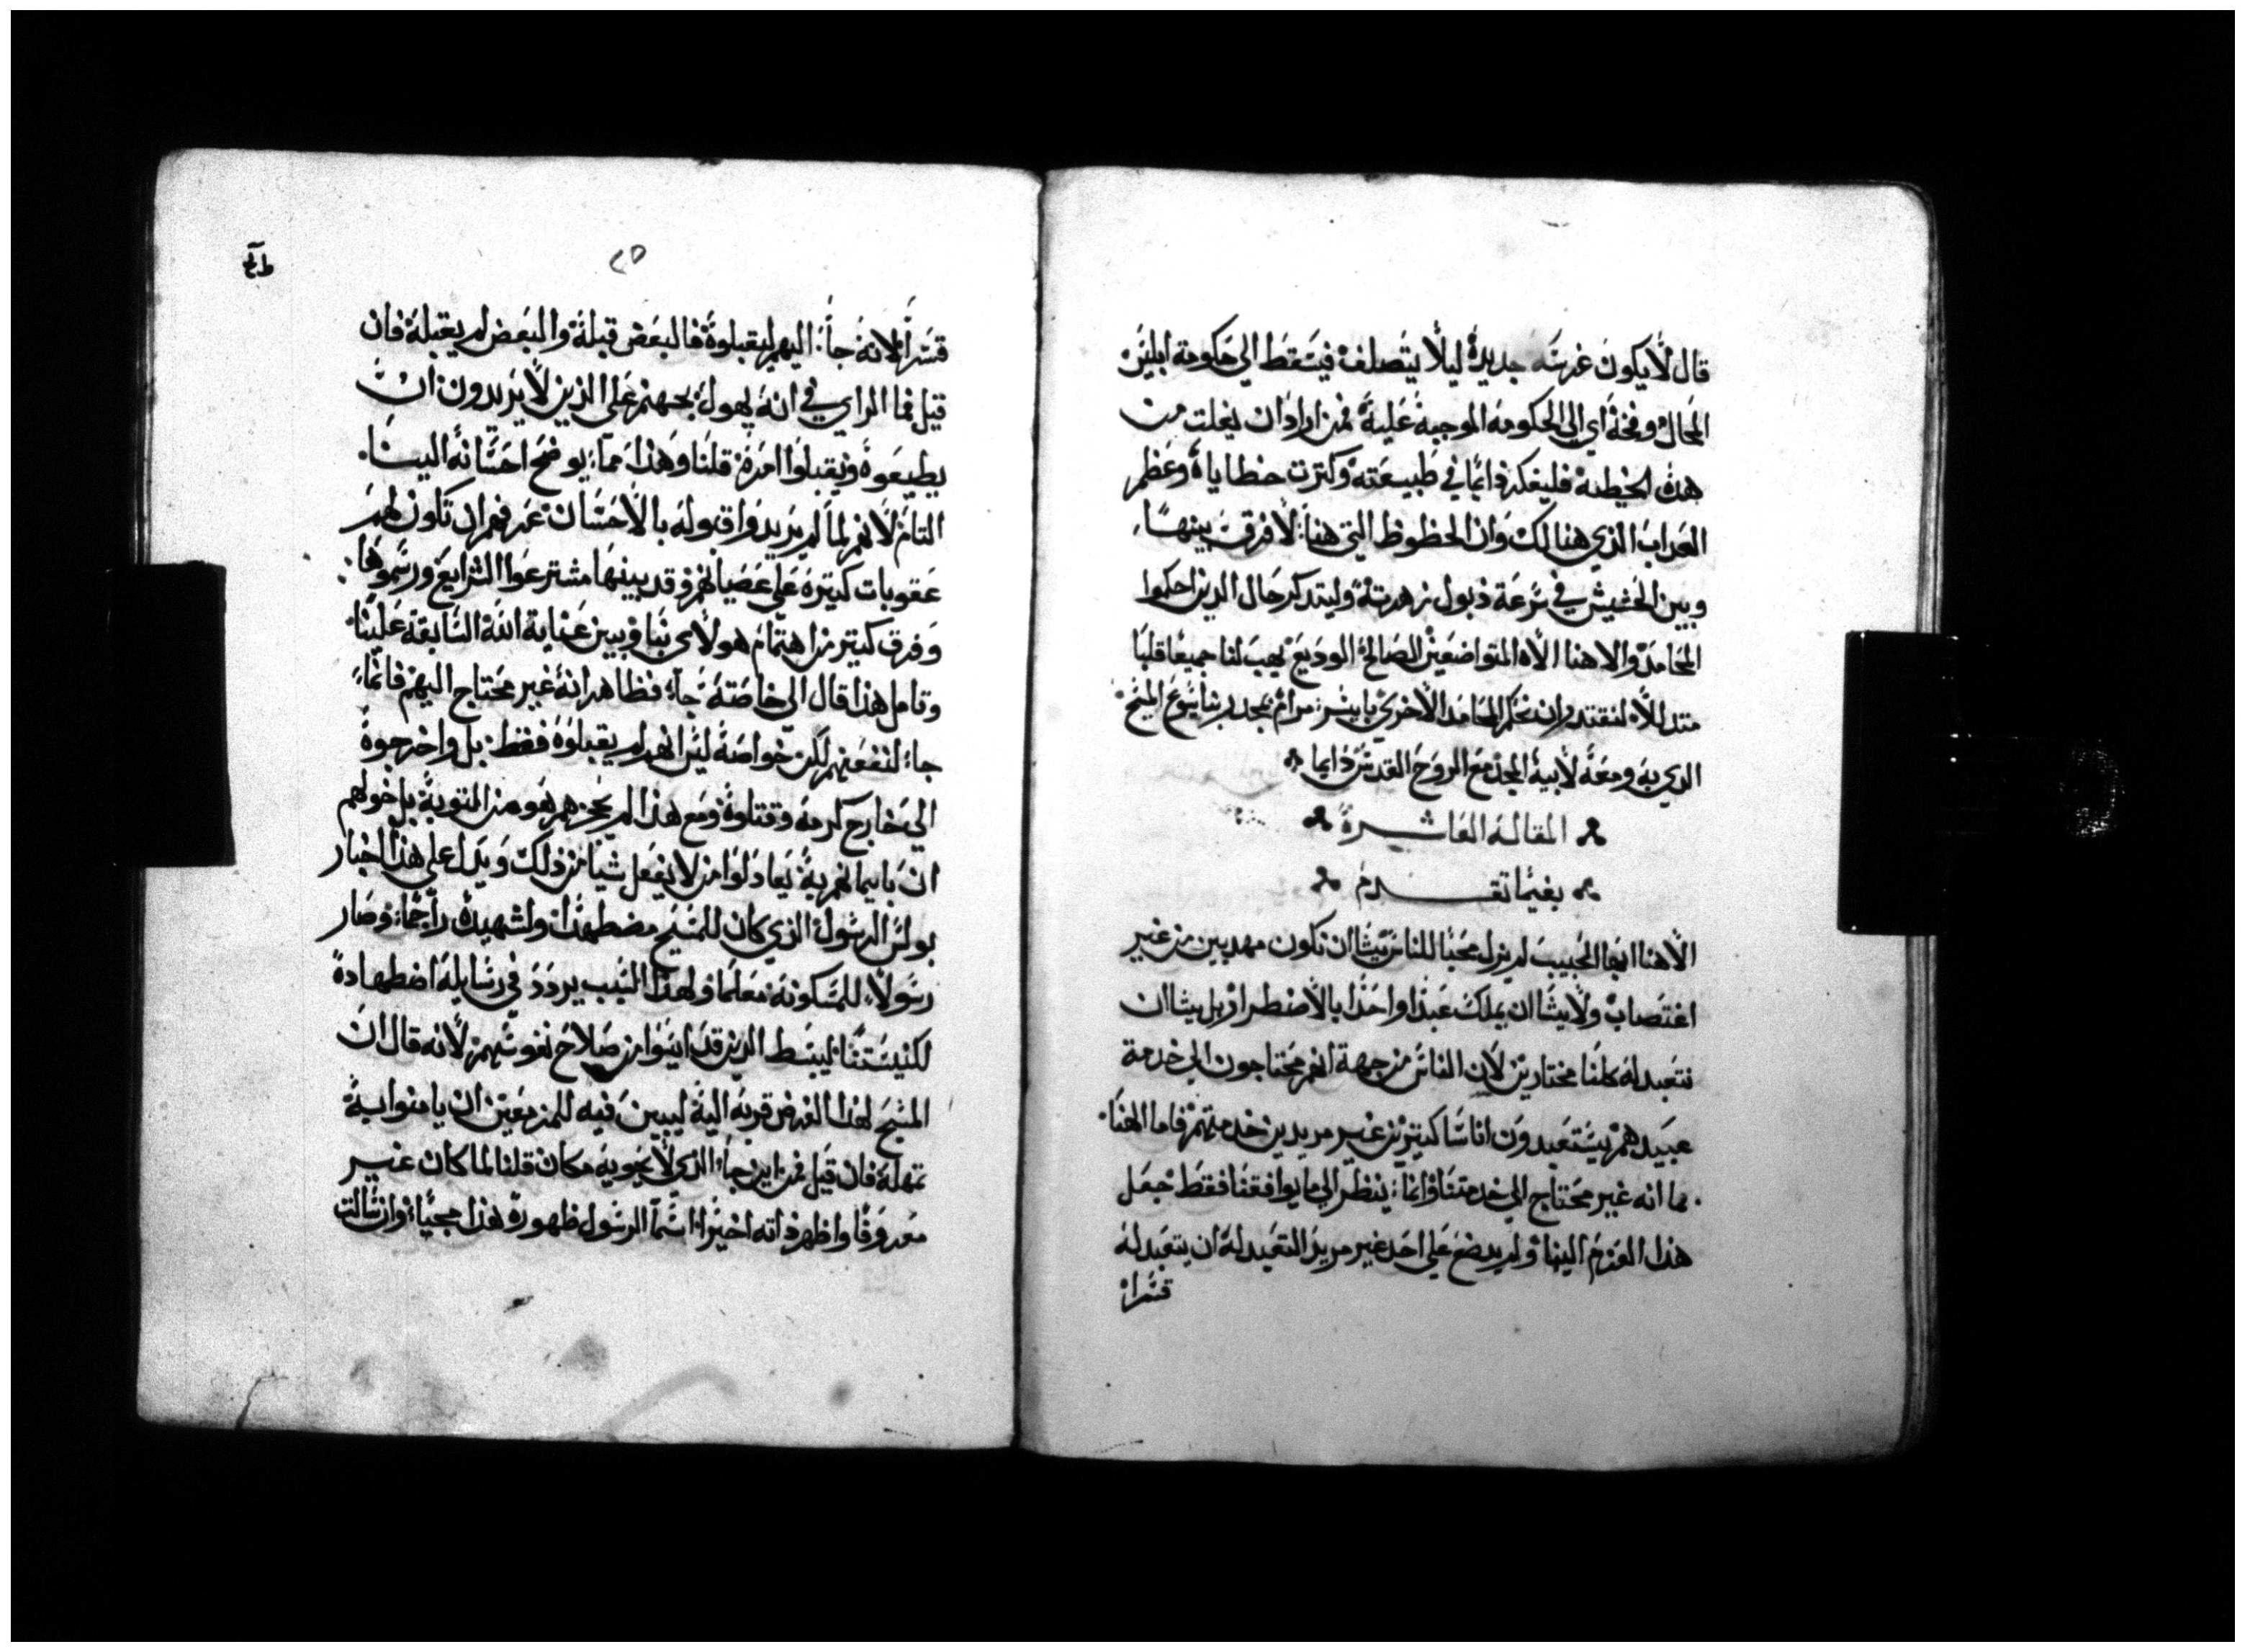 قال لا يكون غرسه جديدة ليلا يتصلف فيسقط الي حكومة ابليس
المحال وفخة اي الي الحكومة الموجبة علية فمن اراد ان يفلت من
هذه الخطية فليفكر دايما في طبيعته وكترت خطاياة وعظم
العداب الذي هنالك وان الحظوظ التي هنا لا فرق بينها
وبين الحشيش في سرعة ذبول زهرتة وليتدكر حال الدين احكموا
المحامد والاهنا الاه المتواضعين الصالح الوديع يهب لنا جميعا قلبا
متدللا لنقتدر ان نحكم المحامد الاخري بايسر مرام بمجد ربنا يسوع المسيح
الدي به ومعه لابية المجد مع الروح القدس دايما
المقالة العاشرة
بغيما تقدم
الاهنا ايها الحبيب لم يزل محبا للناس يشا ان نكون مهديين من غير
اغتصاب ولا يشا ان يملك عبدا واحدا بالاضطرار بل يشا ان
نتعبد له كلنا مختارين لان الناس من جهة انهم محتاجون الي خدمة
عبيدهم يستعبدون اناسا كتيرين غير مريدين خدمتهم فاما الهنا
بما انه غير محتاج الي خدمتنا وانما ينظر الي ما يوافقنا فقط جعل
هذا العزم الينا ولم يضع علي احد غير مريد التعبد له ان يتعبد له
قسرا
٢٥
قسرا لانه جا اليهم ليقبلوة فالبعض قبلة والبعض لم يقبلة فان
قيل فما الراي في انه يهول بجهنم علي الذين لا يريدون ان
يطيعوة ويقبلوا امرة قلنا وهذا مما يوضح احسانه الينا
التام لانهم لما لم يريدوا قبوله بالاحسان عرفهم ان تكون لهم
عقوبات كتيرة علي عصيانهم وقد بينها مشترعوا الشرايع ورسموها
وفرق كتير من اهتمام هولاي بنا وبين عناية الله السابقة علينا
وتامل هذا قال الي خاصتة جا فظاهر انه غير محتاج اليهم فانما
جا لنفعهم لكن خواصة ليس انهم لم يقبلوة فقط بل واخرجوة
الي خارج كرمة وقتلوة ومع هذا لم يحرمهم هو من التوبة بل خولهم
ان بايمانهم بة يعادلوا من لا يفعل شيا من ذلك ويدل علي هذا اخبار
بولس الرسول الذي كان للمسيح مضطهدا ولشهيدة راجما وصار
رسولا للمسكونة معلما ولهذا السبب يردد في رسايلة اضطهادة
لكنيستنا ليبسط الدين قد ايسوا من صلاح نفوسهم لانه قال ان
المسيح لهذا الغرض قربه الية ليبين فيه للمزمعين ان يامنوا بة
تمهلة فان قيل فمن اين جا الذي لا يحويه مكان قلنا لما كان غير
معروفا واظهر ذاته اخيرا اسما الرسول ظهورة هذا مجيا وان سالت